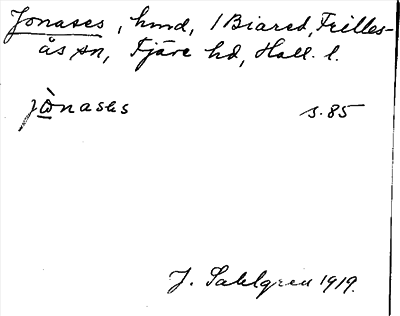 Jonases, hmd, 1 Biared, Frilles-
ås sn, Fjäre hd, Hall. l.
jò̲nases s. 85
J. Sahlgren 1919.